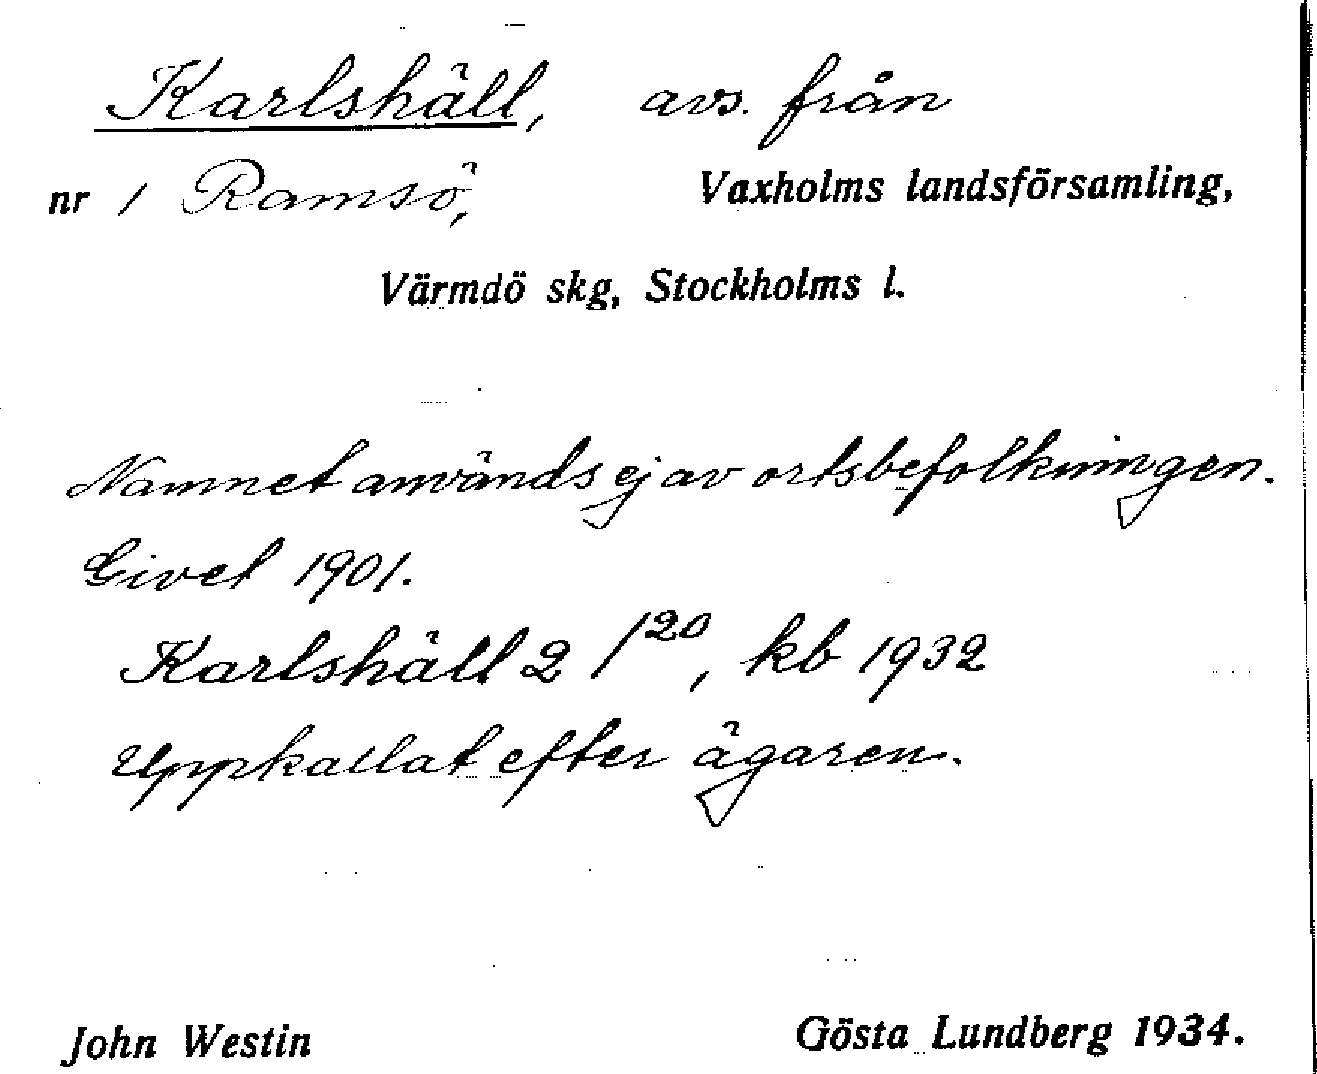 Karlshäll, avs. från
nr 1 Ramsö, Vaxholms landsförsamling,
Värmdö skg, Stockholms l.
Namnet används ej av ortsbefolkningen.
Givet 1901.
Karlshäll 2 /20, kb 1932
Uppkallat efter ägaren.
John Westin Gösta Lundberg 1934.